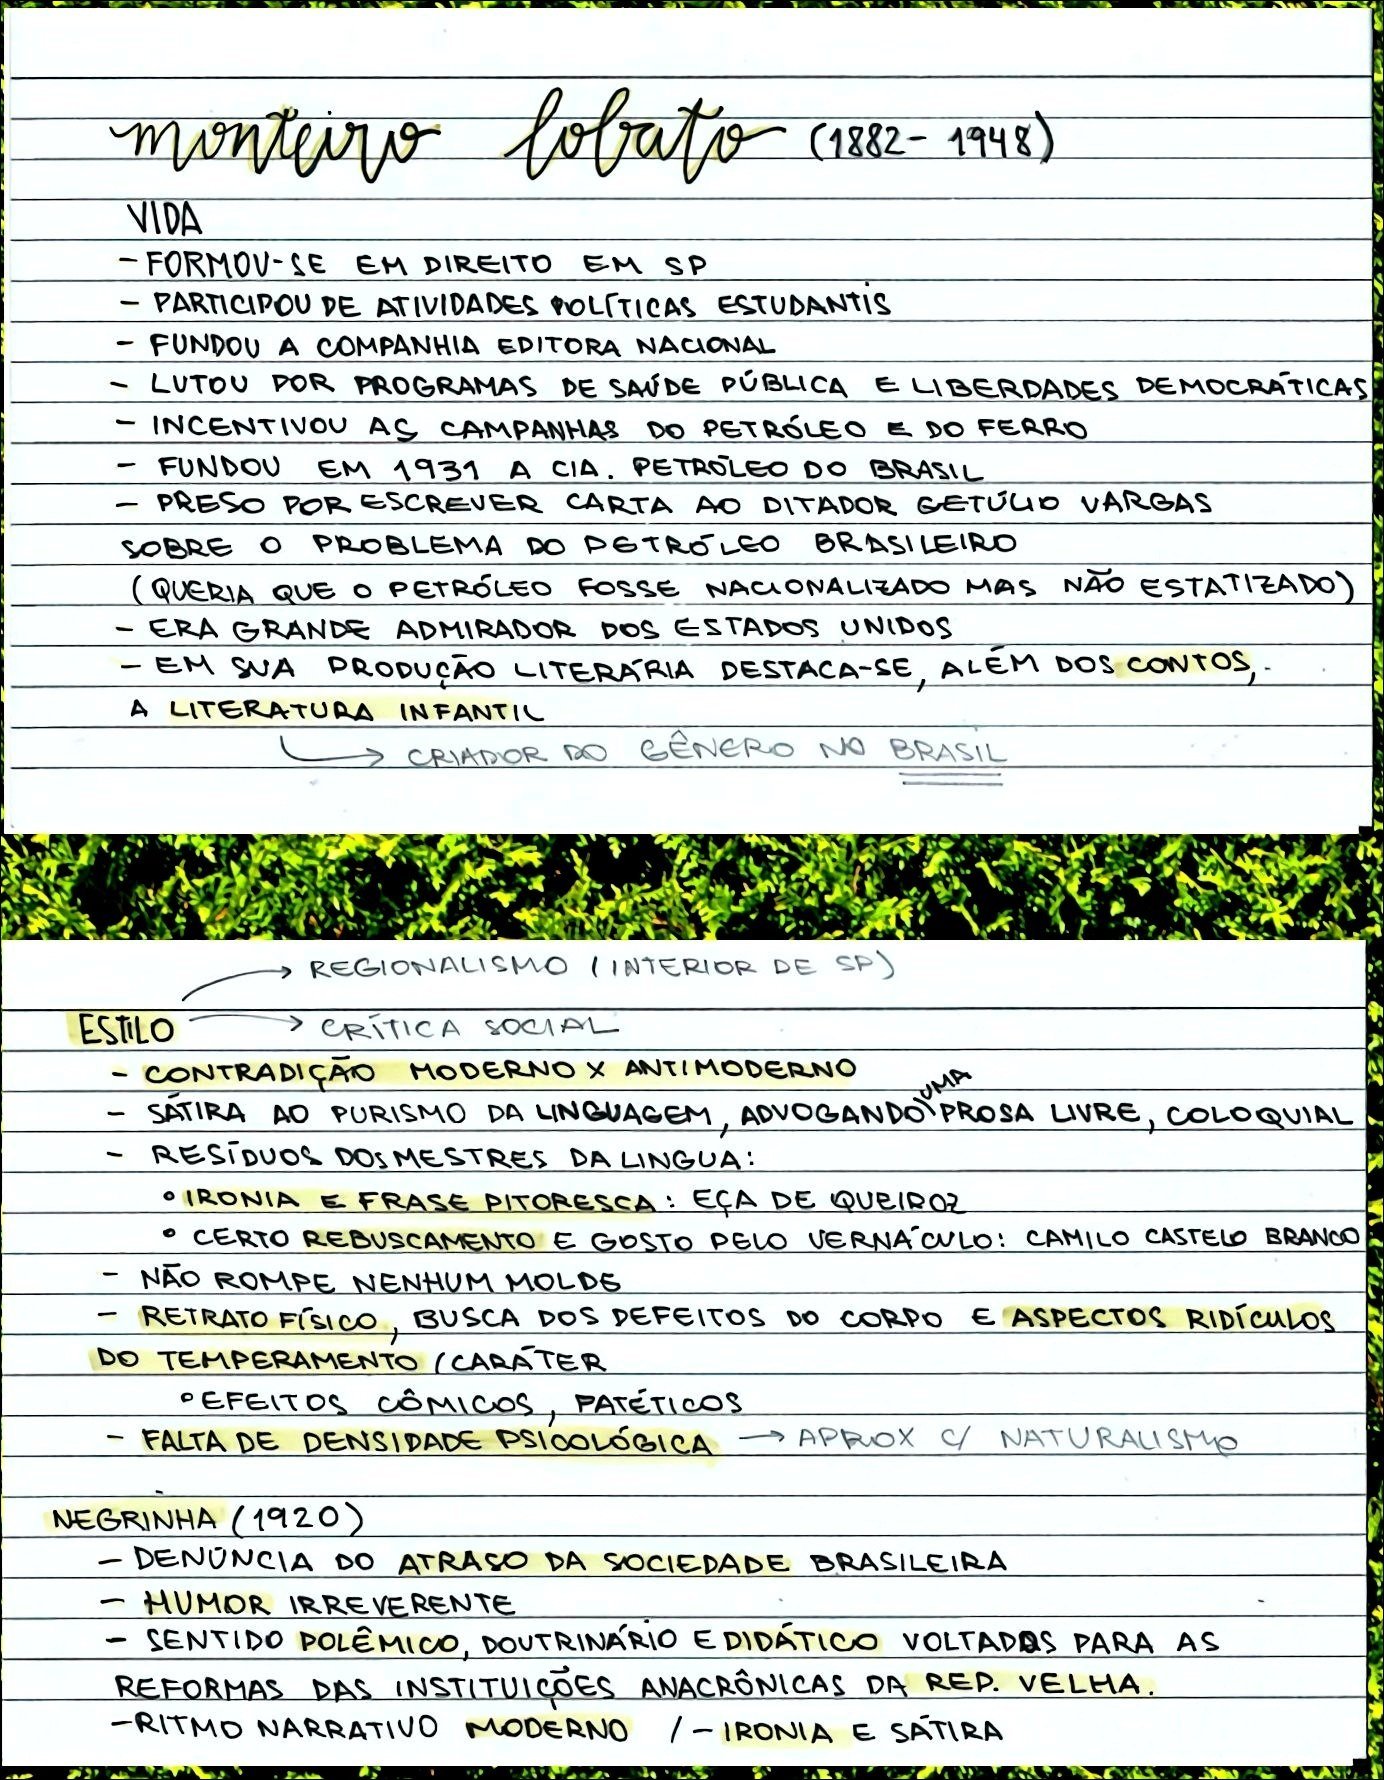 monteiro lobato (1882-1948)
VIDA
- FORMOU-SE EM DIREITO EM SP
- PARTICIPOU DE ATIVIDADES POLÍTICAS ESTUDANTIS
- FUNDOU A COMPANHIA EDITORA NACIONAL
- LUTOU POR PROGRAMAS DE SAÚDE PÚBLICA E LIBERDADES DEMOCRÁTICAS
- INCENTIVOU AS CAMPANHAS DO PETRÓLEO E DO FERRO
- FUNDOU EM 1931 A CIA. PETRÓLEO DO BRASIL
- PRESO POR ESCREVER CARTA AO DITADOR GETÚLIO VARGAS
SOBRE O PROBLEMA DO PETRÓLEO BRASILEIRO
(QUERIA QUE O PETRÓLEO FOSSE NACIONALIZADO MAS NÃO ESTATIZADO)
- ERA GRANDE ADMIRADOR DOS ESTADOS UNIDOS
- EM SUA PRODUÇÃO LITERÁRIA DESTACA-SE, ALÉM DOS CONTOS,
A LITERATURA INFANTIL
→ CRIADOR DO GÊNERO NO BRASIL
→ REGIONALISMO (INTERIOR DE SP)
ESTILO → CRÍTICA SOCIAL
- CONTRADIÇÃO MODERNO X ANTIMODERNO
- SÁTIRA AO PURISMO DA LINGUAGEM, ADVOGANDO UMA PROSA LIVRE, COLOQUIAL
- RESÍDUOS DOS MESTRES DA LINGUA:
° IRONIA E FRASE PITORESCA: EÇA DE QUEIROZ
° CERTO REBUSCAMENTO E GOSTO PELO VERNÁCULO: CAMILO CASTELO BRANCO
- NÃO ROMPE NENHUM MOLDE
- RETRATO FÍSICO, BUSCA DOS DEFEITOS DO CORPO E ASPECTOS RIDÍCULOS
DO TEMPERAMENTO (CARÁTER
° EFEITOS CÔMICOS, PATÉTICOS
- FALTA DE DENSIDADE PSICOLÓGICA → APROX C/ NATURALISMO
NEGRINHA (1920)
- DENÚNCIA DO ATRASO DA SOCIEDADE BRASILEIRA
- HUMOR IRREVERENTE
- SENTIDO POLÊMICO, DOUTRINÁRIO E DIDÁTICO VOLTADOS PARA AS
REFORMAS DAS INSTITUIÇÕES ANACRÔNICAS DA REP. VELHA.
- RITMO NARRATIVO MODERNO / - IRONIA E SÁTIRA